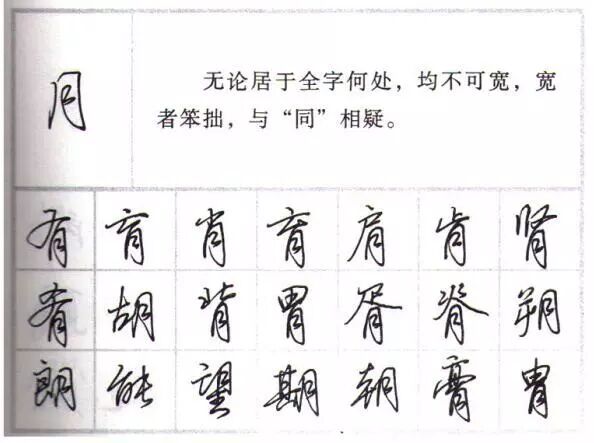 月
无论居于全字何处，均不可宽，宽
者笨拙，与“同”相疑。
有 肓 肖 育 肩 肯 肾
肴 胡 背 胃 胥 脊 朔
朗 能 望 期 朝 膏 胄